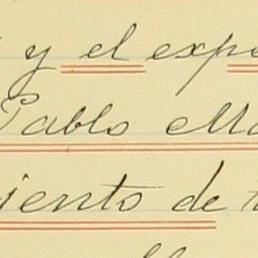 y el expe
Pablo Ma
iento de t